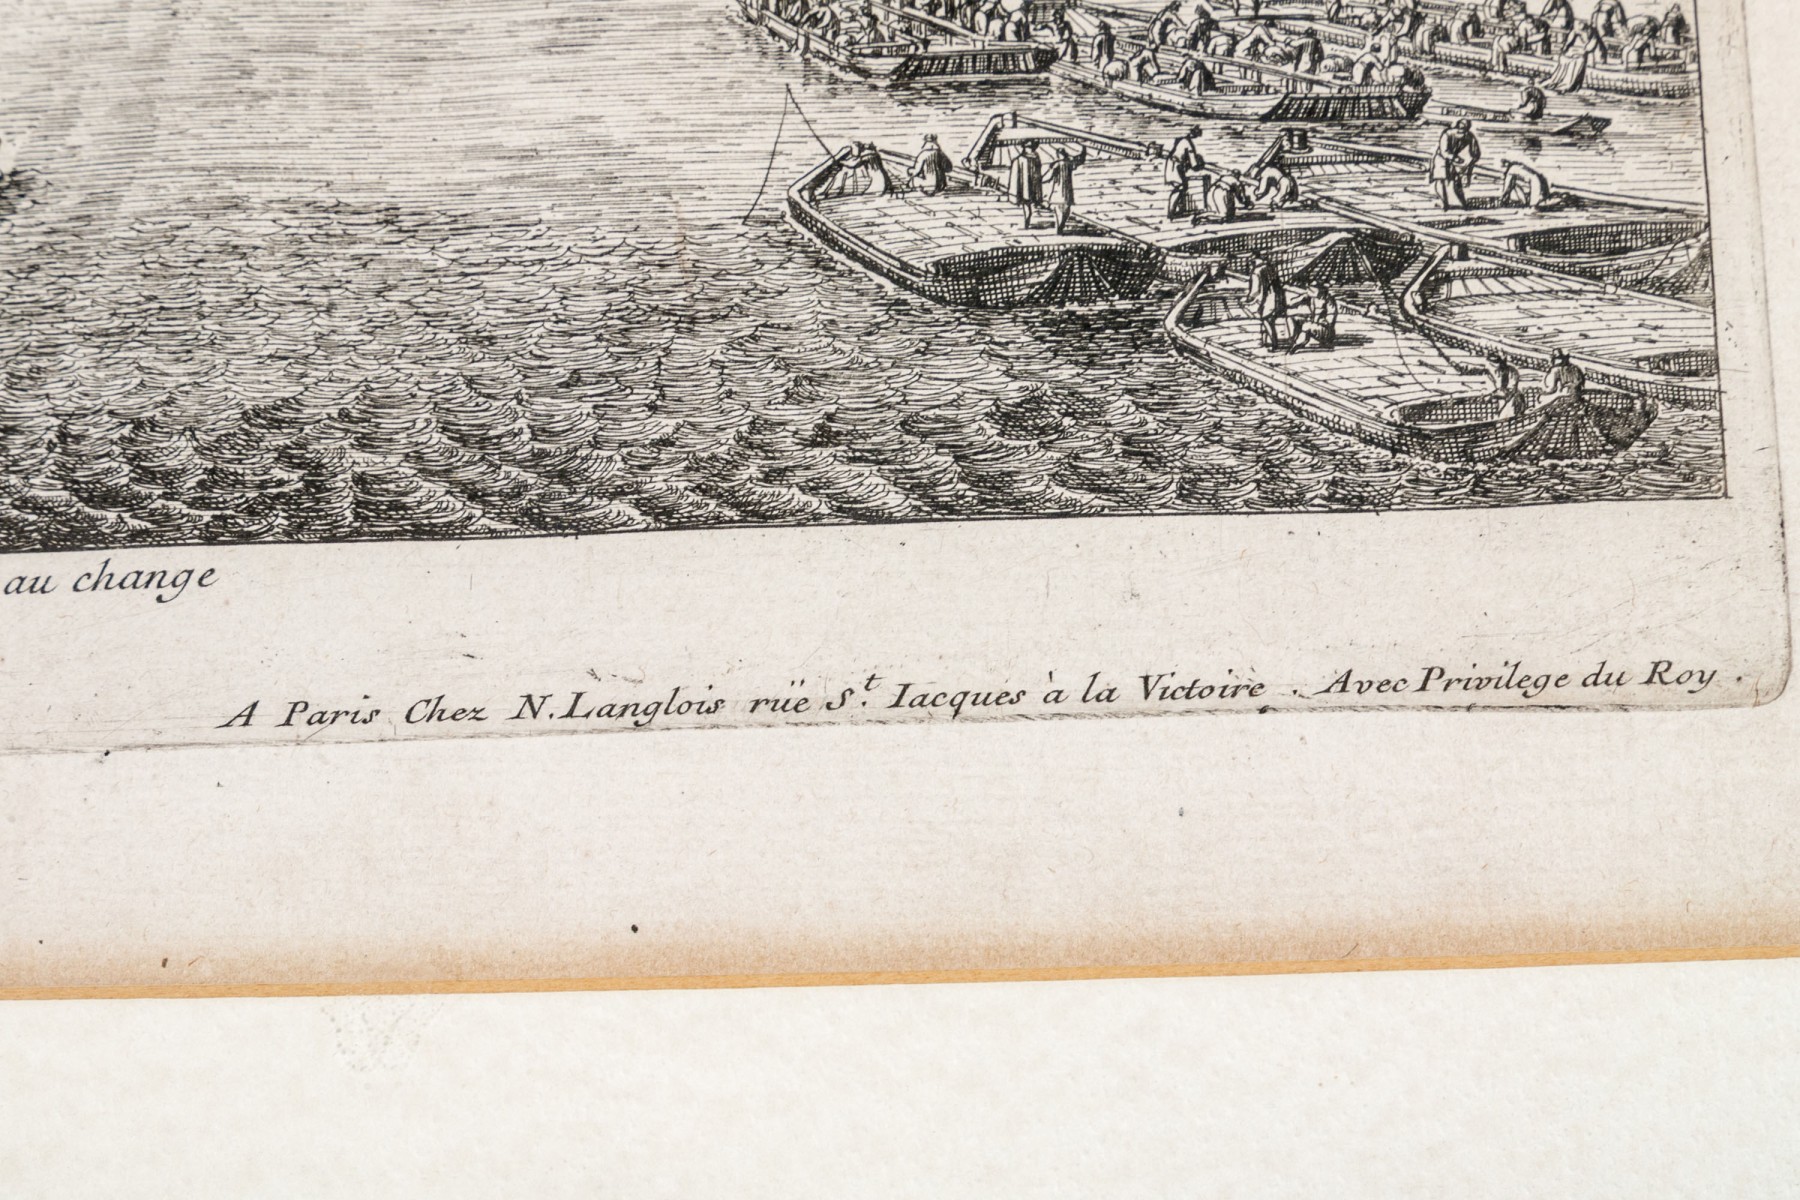 au change
A Paris Chez N. Langlois rüe S.t Iacques à la Victoire . Avec Privilege du Roy .